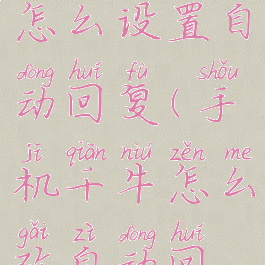 怎么设置自
dòng huí fù shǒu
动回复(手
jī qiān niú zěn me
机千牛怎么
gǎi zì dòng huí
改自动回